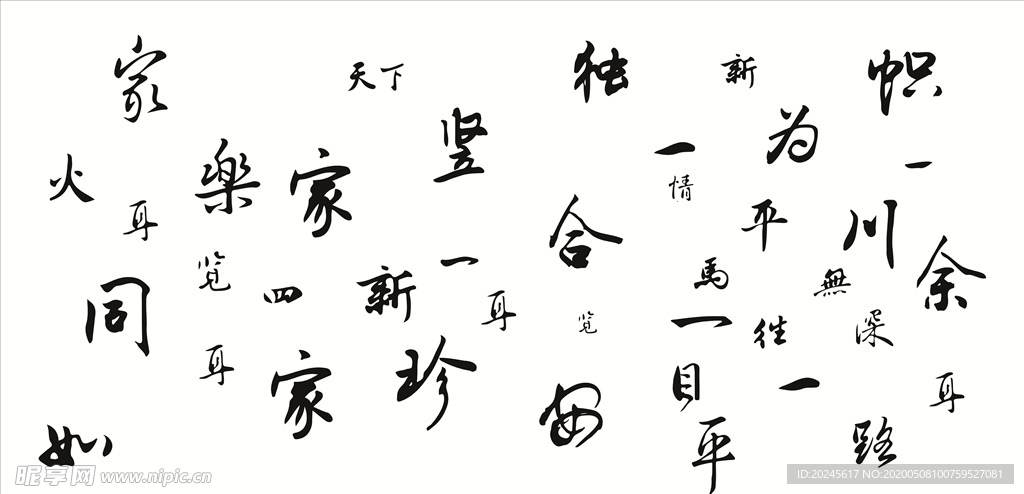 家
天下
独
新
帜
竖
为
一
火
樂
家
情
一
耳
平
川
合
余
览
四
新
一
馬
無
同
耳
览
一
往
深
耳
家
珍
目
一
耳
安
如
平
路
昵享网 www.nipic.cn
ID:20245617 NO:20200508100759527081